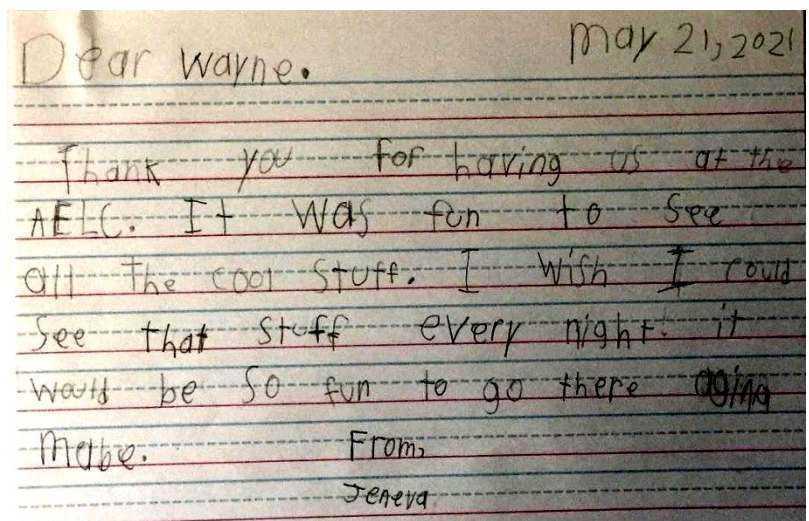 Dear Wayne. May 21, 2021
Thank you for having us at the
AELC. It was fun to see
all the cool stuff. I wish I could
See that stuff every night! it
Would be so fun to go there aging
mabe. From,
Jeneva